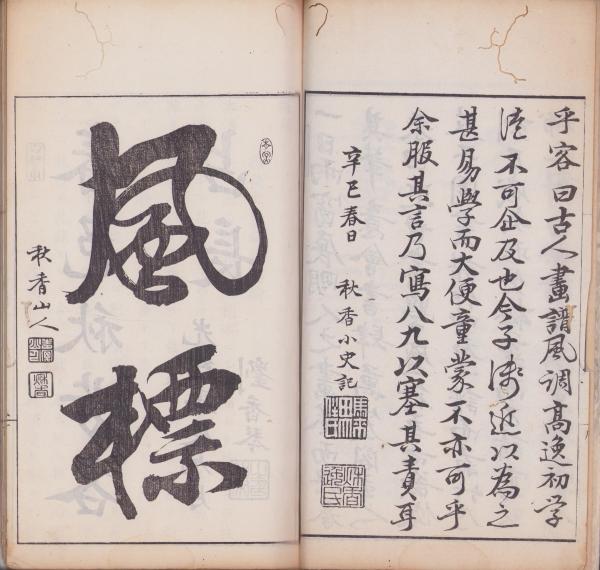 乎容曰古人畫譜風調高逸初学
不可企及也今子淺近以為之
甚易學而大便童蒙不亦可乎
余服其言乃寫八九以塞其責耳
辛巳春日
秋香小史記
風標
秋香山人